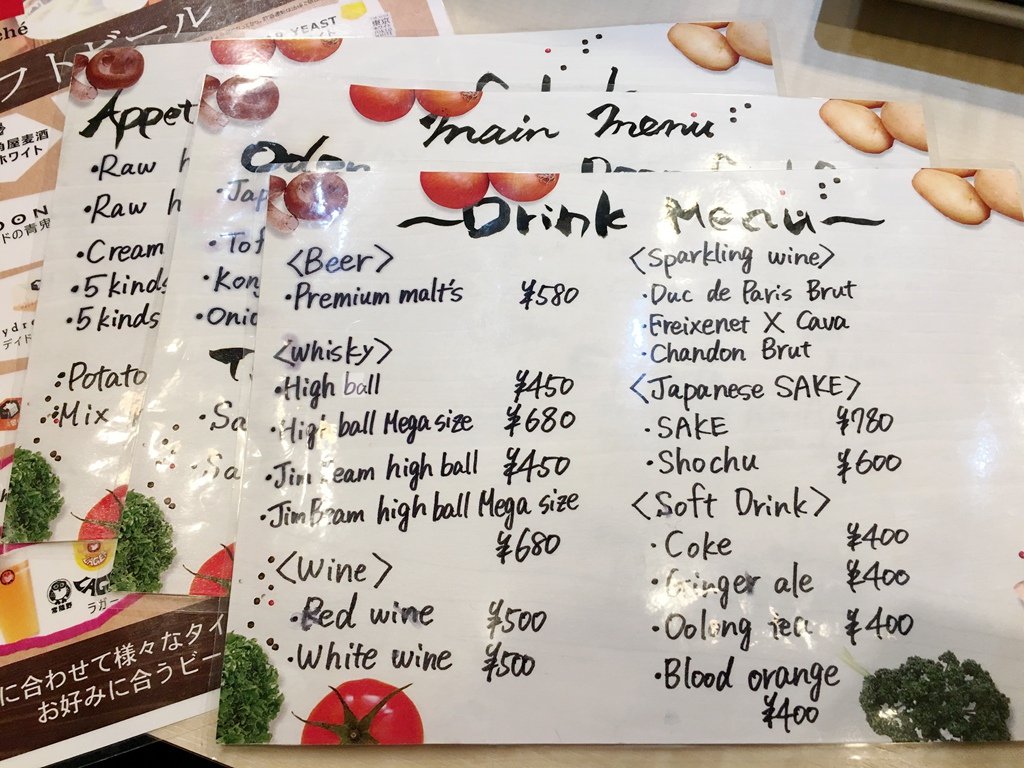 Drink Menu
<Beer>
・Premium malt's ¥580
<Whisky>
・High ball ¥450
・High ball Mega size ¥680
・Jim Beam high ball ¥450
・Jim Beam high ball Mega size
¥680
<Wine>
・Red wine ¥500
・White wine ¥500
<Sparkling wine>
・Duc de Paris Brut
・Freixenet X Cava
・Chandon Brut
<Japanese SAKE>
・SAKE ¥780
・Shochu ¥600
<Soft Drink>
・Coke ¥400
・Ginger ale ¥400
・Oolong tea ¥400
・Blood orange
¥400
Main Menu
Oden
・Jap
・Tof
・Kon
・Onio
・Sa
・Sa
Appet
・Raw h
・Raw h
・Cream
・5 kinds
・5 kinds
・Potato
・Mix
フトビール
YEAST
角屋麦酒
ホワイト
DON
ドの青鬼
ydre
デイド
EAGLE
ラガー
に合わせて様々なタイ
お好みに合うビー